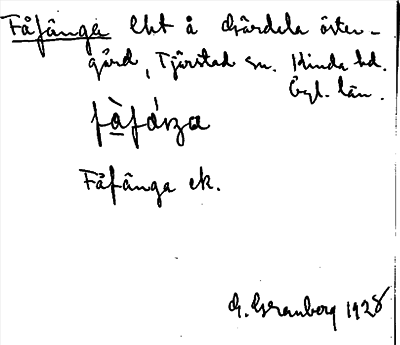 Fåfänga lht å Gärdela öster-
gård, Tjärstad sn. Kinda hd.
Ögl. län.
fåfáŋa
Fåfänga ek.
G. Granberg 1928